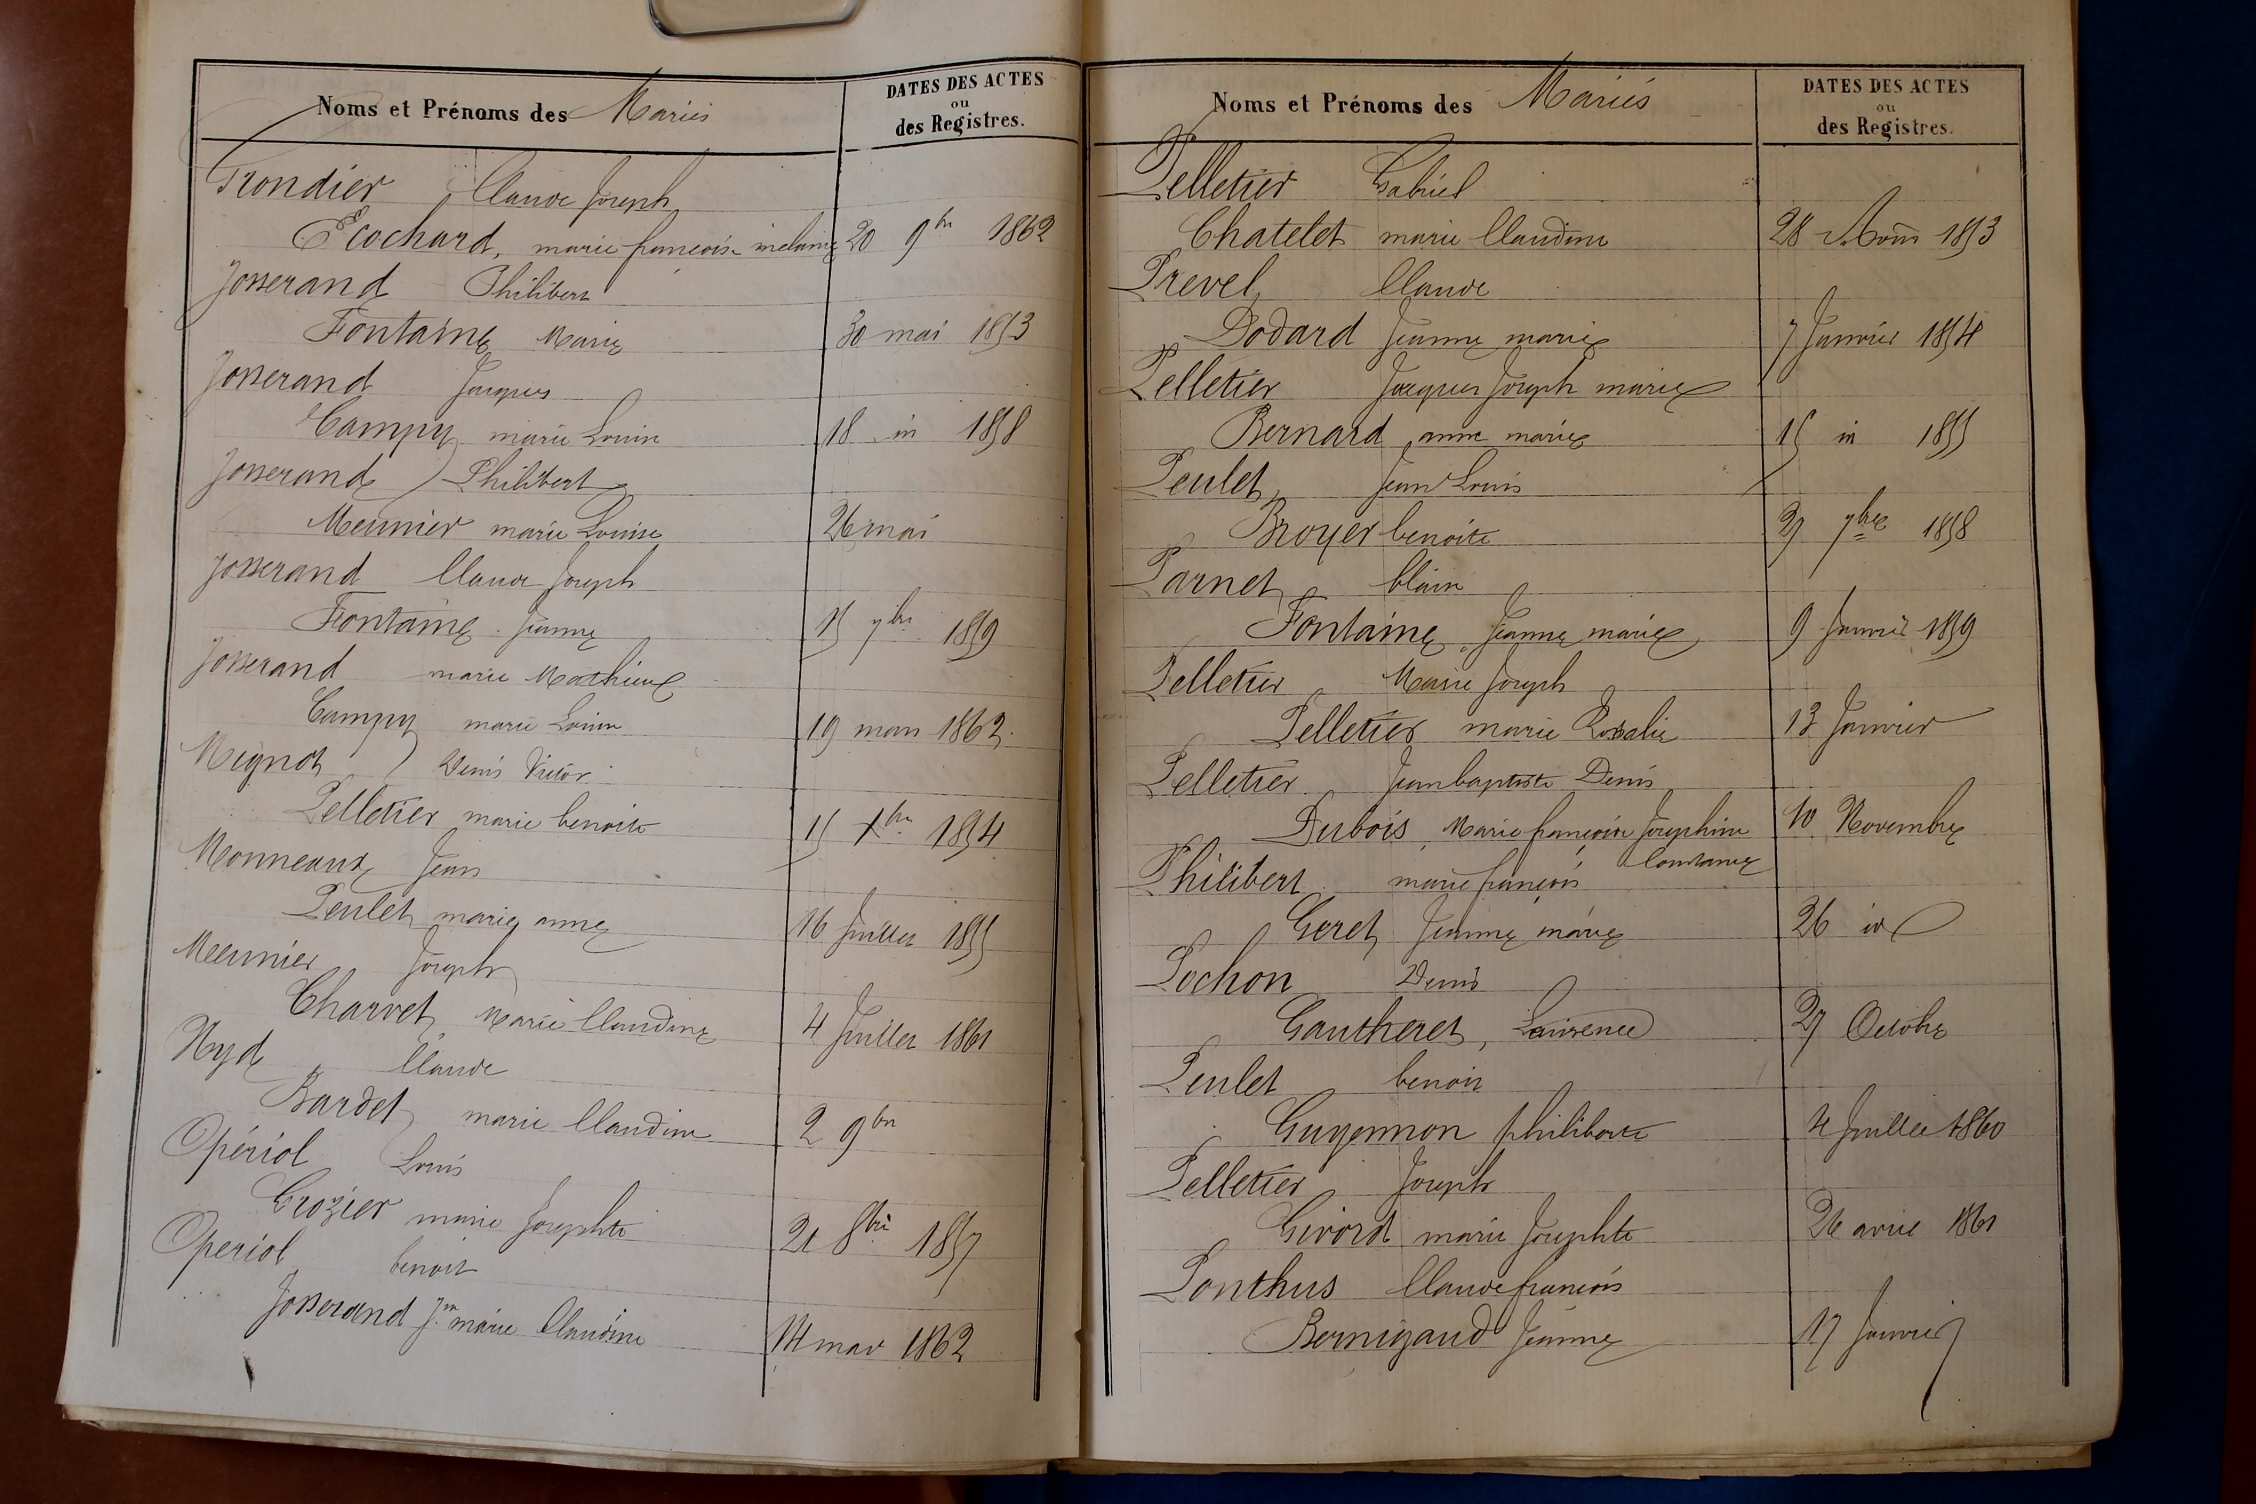 Noms et Prénoms des Mariés
DATES DES ACTES
ou
des Registres.
Frondier Claude Joseph
Ecochard, marie françoise melanie 20 9bre 1862
Josserand Philibert
Fontaine Marie 30 mai 1853
Josserand Jacques
Campy marie Louise 18 in 1858
Josserand Philibert
Meunier marie Louise 26 mai
Josserand Claude Joseph
Fontaine Jeanne 15 7bre 1859
Josserand marie Mathieu
Campy marie Louise 19 mars 1862.
Mignot Denis Victor
Pelletier marie benoite 15 Xbre 1854
Monneaux Jean
Peulet marie anne 16 Juillet 1855
Meunier Joseph
Charvet Marie Claudine 4 Juillet 1861
Nyd Claude
Bardet marie Claudine 2 9bre
Opériol Louis
Crozier marie Josephte 21 8bre 1857
Operiol benoit
Josserand Jne marie Claudine 14 mar 1862
Noms et Prénoms des Mariés
DATES DES ACTES
ou
des Registres.
Pelletier Gabriel
Chatelet marie Claudine 28 1853
Prevel Claude
Dodard Jeanne marie 7 Janvier 1854
Pelletier Jacques Joseph marie
Bernard anne marie 15 in 1855
Peulet Jean Louis
Broyer benoite 27 7bre 1858
Parnet
Fontaine Jeanne marie 9 Janvier 1859
Pelletier Marie Joseph
Pelletier marie Rosalie 13 Janvier
Pelletier Jean baptiste Denis
Dubois, Marie françoise Josephine 10 Novembre
Constance
Philibert marie françois
Geret Jeanne marie 26 id
Pochon Denis
Gautheret, Laurence 27 Octobre
Peulet benoit
Guyennon philiberte 4 Juillet 1860
Pelletier Joseph
Girord marie Josephte 26 avril 1861
Ponthus Claude françois
Bernigaud Jeanne 17 Janvier